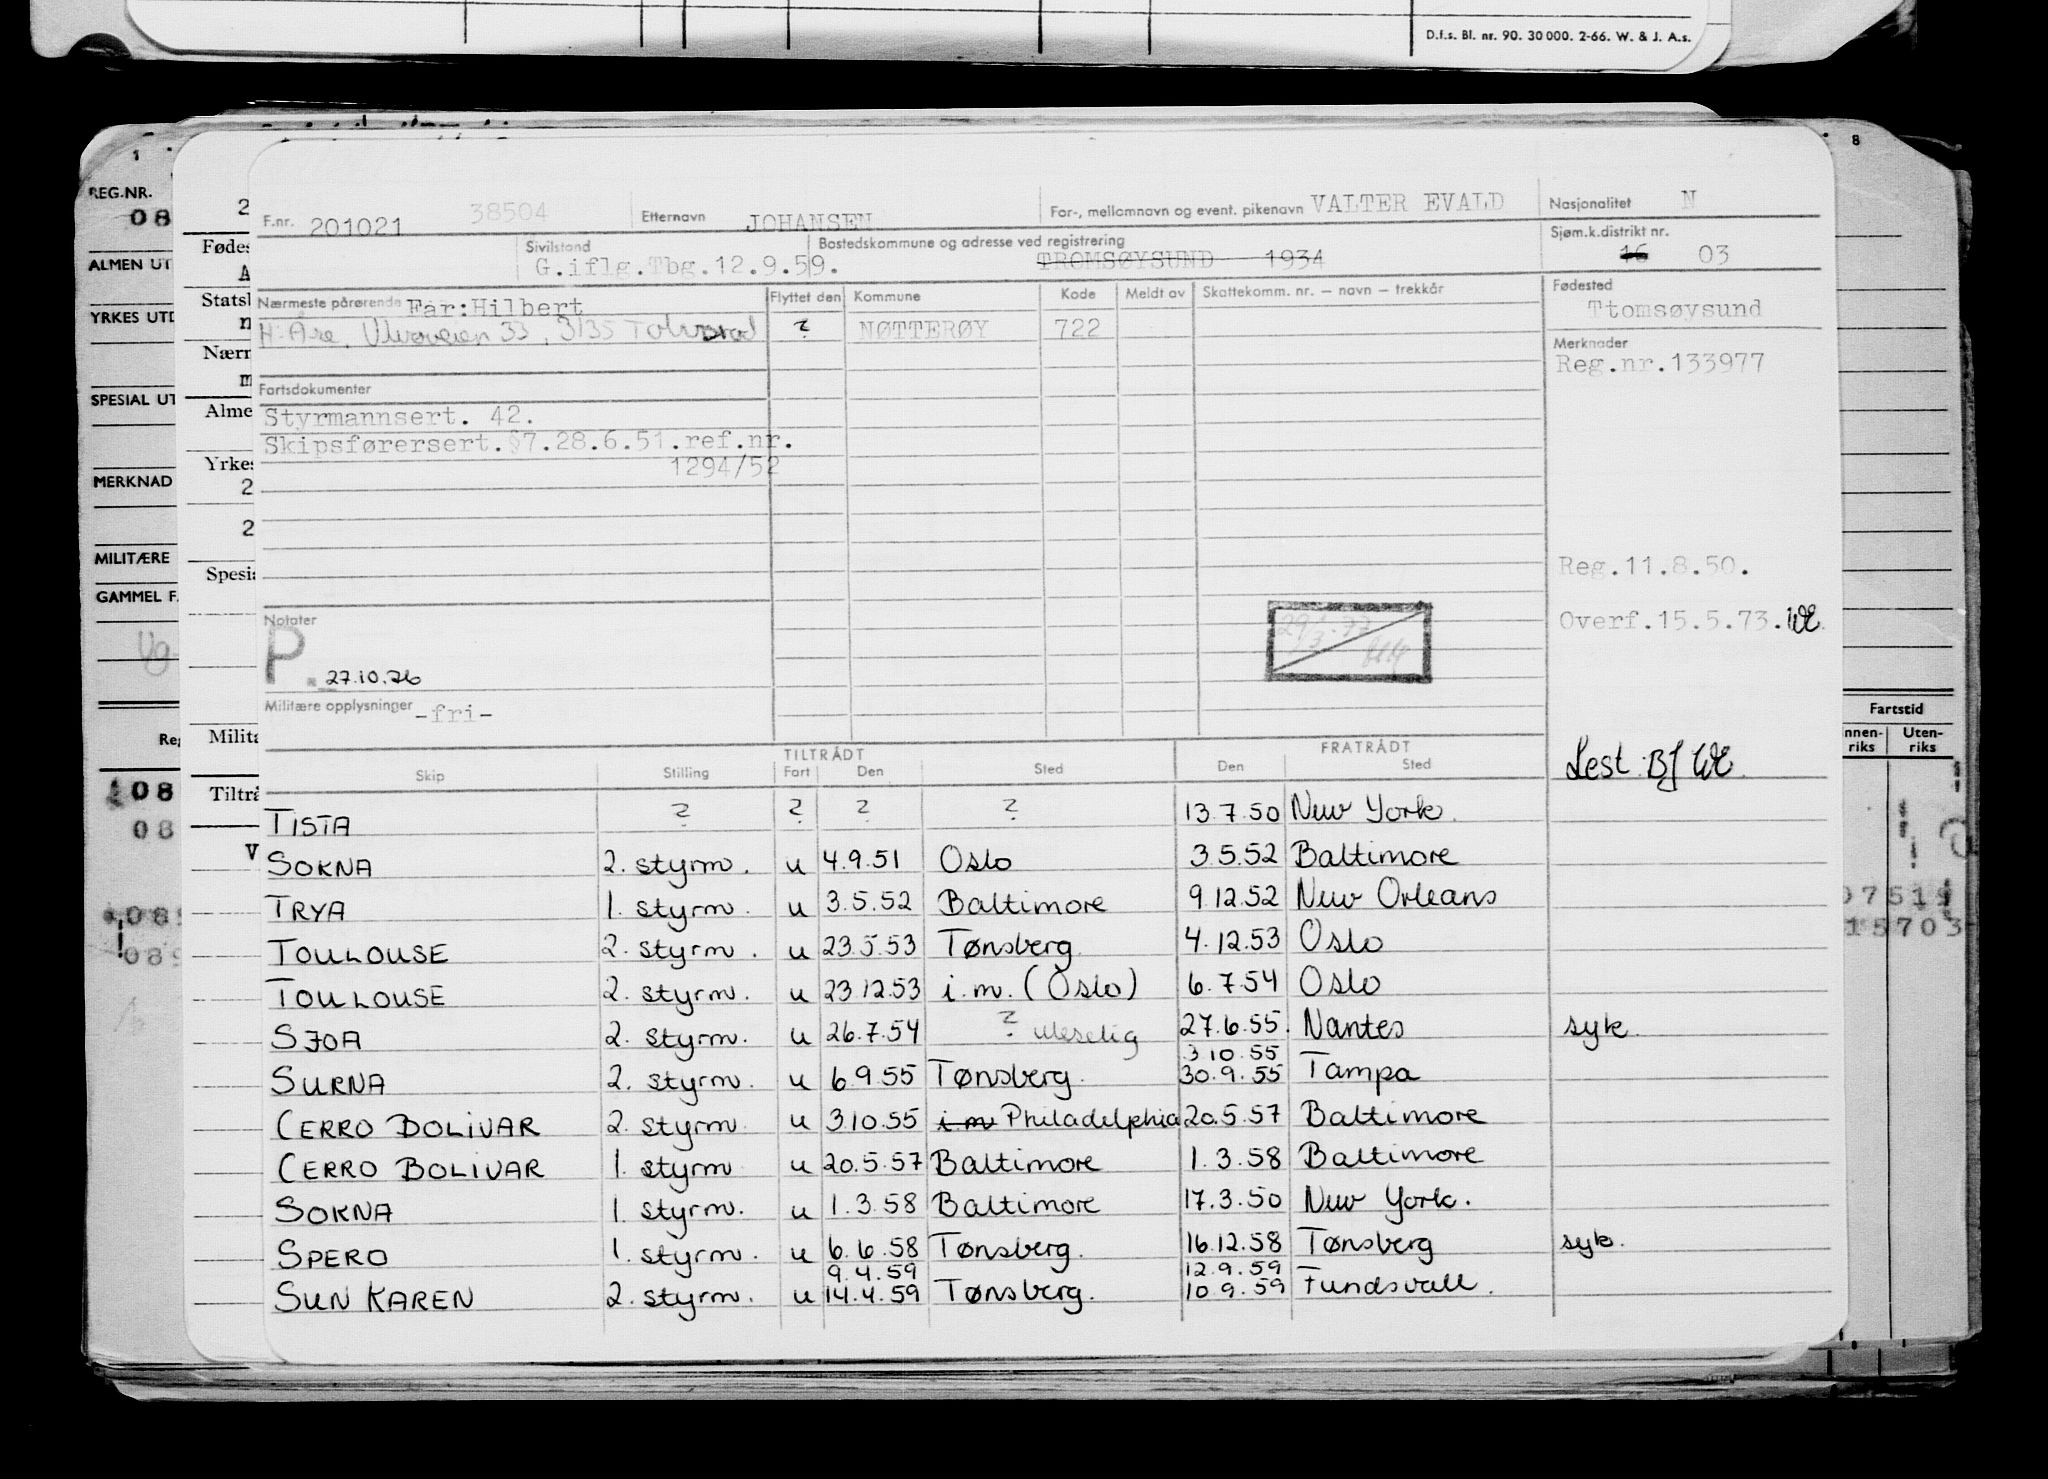 D.f.s. Bl. nr. 90. 30 000. 2-66. W. & J. A.s.
1 8
REG.NR. 08
ALMEN UT
YRKES UTD
SPESIAL UT
MERKNAD
MILITÆRE
GAMMEL F
Fødes
Statsb
Nærm
Alme
Yrkes
2
2
Spesia
Milita
Tiltrå
F.nr. 201021 38504 Etternavn JOHANSEN For-, mellomnavn og event. pikenavn VALTER EVALD Nasjonalitet N
Sivilstand G.iflg.Tbg.12.9.59. Bostedskommune og adresse ved registrering TROMSØYSUND 1934 Sjøm.k.distrikt nr. 16 03
Nærmeste pårørende Far:Hilbert Flyttet den Kommune Kode Meldt av Skattekomm. nr. – navn – trekkår Fødested Ttomsøysund
H: Åse, Ulvøveien 33, 3135 Tolvsrød ? NØTTERØY 722
Merknader
Reg.nr.133977
Fartsdokumenter
Styrmannsert. 42.
Skipsførersert.§7.28.6.51.ref.nr.
1294/52
Reg.11.8.50.
Overf.15.5.73.
Notater
P. 27.10.76
Militære opplysninger -fri-
Lest: BJ
TILTRÅDT FRATRÅDT
Skip Stilling Fart Den Sted Den Sted
TISTA ? ? ? ? 13.7.50 New York.
SOKNA 2. styrm. u 4.9.51 Oslo 3.5.52 Baltimore
TRYA 1. styrm. u 3.5.52 Baltimore 9.12.52 New Orleans
TOULOUSE 2. styrm. u 23.5.53 Tønsberg 4.12.53 Oslo
TOULOUSE 2. styrm. u 23.12.53 i.m. (Oslo) 6.7.54 Oslo
SJOA 2. styrm. u 26.7.54 ? uleselig 27.6.55. Nantes syk.
3.10.55
SURNA 2. styrm. u 6.9.55 Tønsberg. 30.9.55 Tampa
CERRO BOLIVAR 2. styrm. u 3.10.55 i.m Philadelphia 20.5.57 Baltimore
CERRO BOLIVAR 1. styrm u 20.5.57 Baltimore 1.3.58 Baltimore
SOKNA 1. styrm. u 1.3.58 Baltimore 17.3.50 New York.
SPERO 1. styrm. u 6.6.58 Tønsberg. 16.12.58 Tønsberg syk.
9.4.59 12.9.59
SUN KAREN 2. styrm. u 14.4.59 Tønsberg. 10.9.59 Fundsvall.
Fartstid
nnen-riks Uten-riks
07519
15703